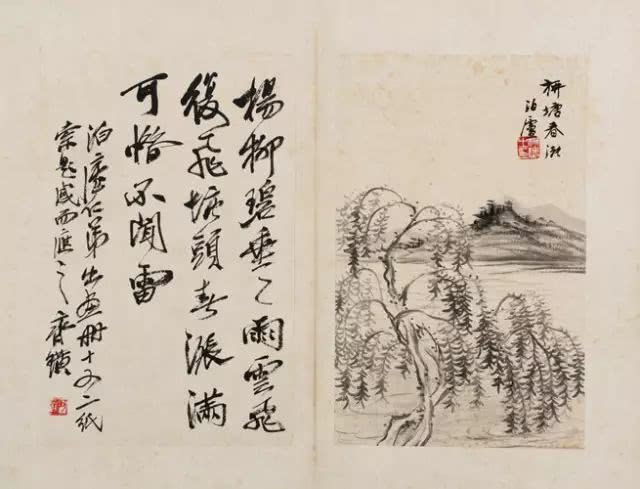 塘春漲
泊廬
楊柳碧垂々雨雲飛
復飛塘頭春漲滿
可惜不聞雷
泊廬仁弟出畫冊十又二紙
索題感而應之齊璜